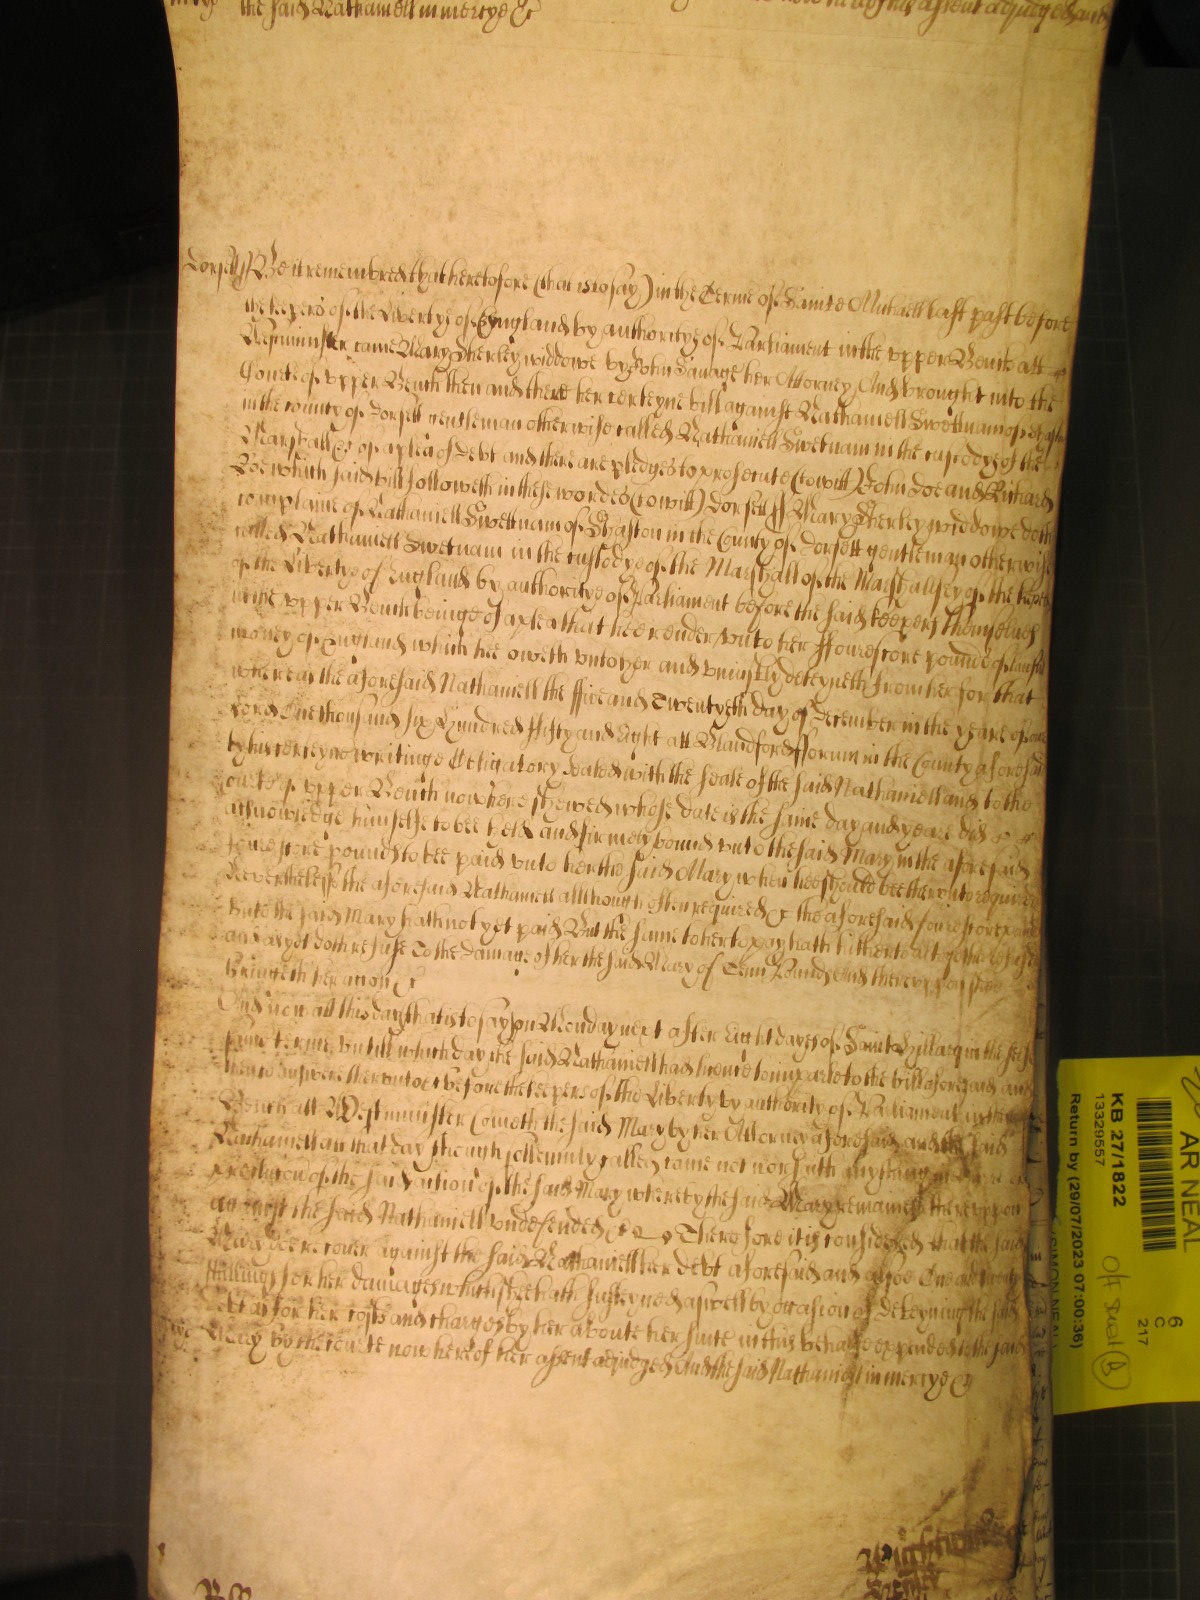 the said Nathaniell in mercye &c
Dorsett ss Be it remembred that heretofore (that is to say) in the Terme of Sainte Michaell last past before
the keepers of the liberty of England by authoritye of Parliament in the upper Bench att
Westminster came Mary Sherley widdowe by John Savage her Attorney And brought into the
Courte of upper Bench then and there her certeyne bill against Nathaniell Swettnam of Shaston
in the county of Dorsett gentleman otherwise called Nathaniell Swetnam in the custodye of the
Marshall &c of a plea of Debt and there are pledges to prosecute (to witt) John Doe and Richard
Roe which said bill followeth in these wordes (to witt) Dorsett ss Mary Sherley widdowe doth
complaine of Nathaniell Swettnam of Shaston in the County of Dorsett gentleman otherwise
called Nathaniell Swetnam in the custodye of the Marshall of the Marshallsey of the keepers
of the Liberty of England by authoritye of Parliament before the said keepers themselves
in the upper Bench beinge of a plea that hee render unto her ffourescore pounds of lawfull
money of England which hee oweth unto her and uniustly deteyneth from her for that
whereas the aforesaid Nathaniell the ffive and Twentyeth day of December in the yeare of our
Lord One thousand six hundred ffifty and Eight att Blandford fforum in the County aforesaid
by his certeyne writinge Obligatory sealed with the seale of the said Nathaniell and to the
courte of upper Bench now here shewed whose date is the same day and yeare did
acknowledge himselfe to bee held and firmely bound unto the said Mary in the aforesaid
fourescore pounds to bee paid unto her the said Mary when hee should bee therunto required
Neverthelesse the aforesaid Nathaniell allthough often required &c the aforesaid fourescore pounds
unto the said Mary hath not yet paid But the same to her to pay hath hitherto altogether refused
and as yet doth refuse To the damage of her the said Mary of Tenn Pounds And thereuppon shee
bringeth her action &c
And now att this day that is to say on Monday next after Eight dayes of Saint Hillary in the selfe
same terme untill which day the said Nathaniell had licence to imparle to the bill aforesaid and
then to answere therunto &c before the keepers of the Liberty by authority of Parliament in the
Bench att Westminster cometh the said Mary by her Attorney aforesaid and the said
Nathaniell att that day though sollemnly called came not nor saith anything in
preclusion of the said action of the said Mary whereby the said Mary remaineth thereuppon
against the said Nathaniell undefended &c Therefore it is considered that the said
Mary doe recover against the said Nathaniell her debt aforesaid and alsoe One and twenty
shillings for her damages which shee hath susteyned aswell by occasion of deteyning the said
debt as for her costs and charges by her aboute her suite in this behalfe expended to the said
Mary by the courte now here of her assent adjudged And the said Nathaniell in mercye &c
AR NEAL
KB 27/1822
13329557
Return by (29/07/2023 07:00:36)
6
C
217